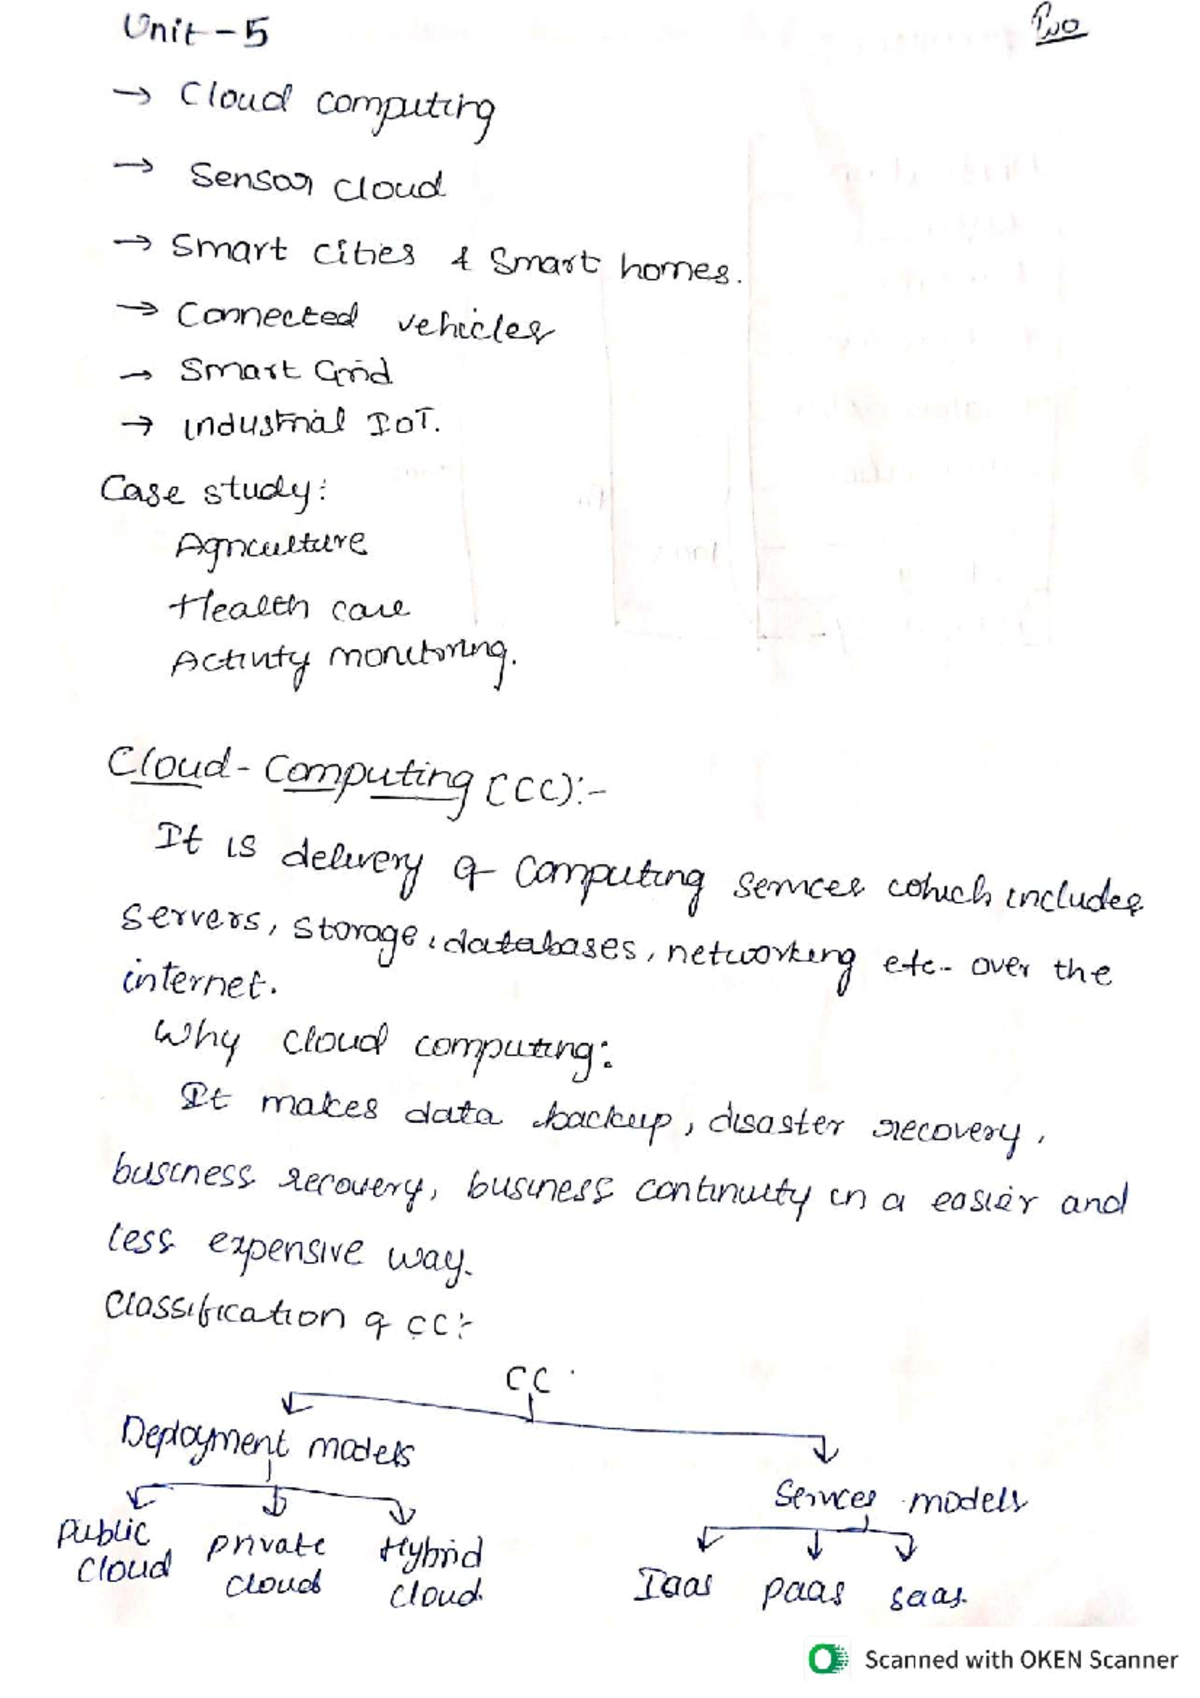 Unit-5
→ Cloud computing
→ Sensor cloud
→ Smart cities & Smart homes.
→ Connected vehicles
→ Smart Grid
→ industrial IoT.
Case study:
Agriculture
Health care
Activity monitoring.
Cloud-Computing (CC):-
It is delivery of Computing services which includes
servers, storage, databases, networking etc.. over the
internet.
Why cloud computing:
It makes data backup, disaster recovery,
business recovery, business continuity in a easier and
less expensive way.
Classification of CC:-
CC
Deployment models
Services models
Public cloud
private cloud
Hybrid cloud
Iaas
paas
saas.
Scanned with OKEN Scanner